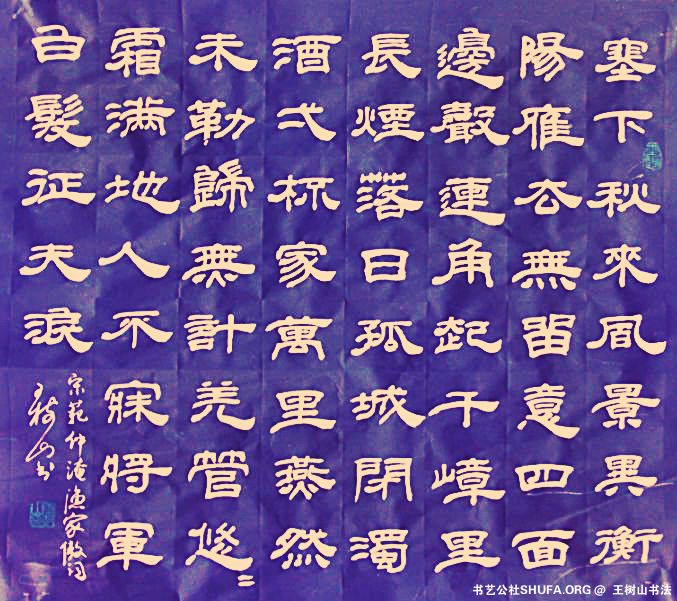 塞下秋來風景異衡
陽雁去無留意四面
邊聲連角起千嶂里
長煙落日孤城閉濁
酒弌杯家萬里燕然
未勒歸無計羌管悠〻
霜滿地人不寐將軍
白髮征夫淚
宋範仲淹漁家傲詞
樹山书
书艺公社SHUFA.ORG @ 王树山书法